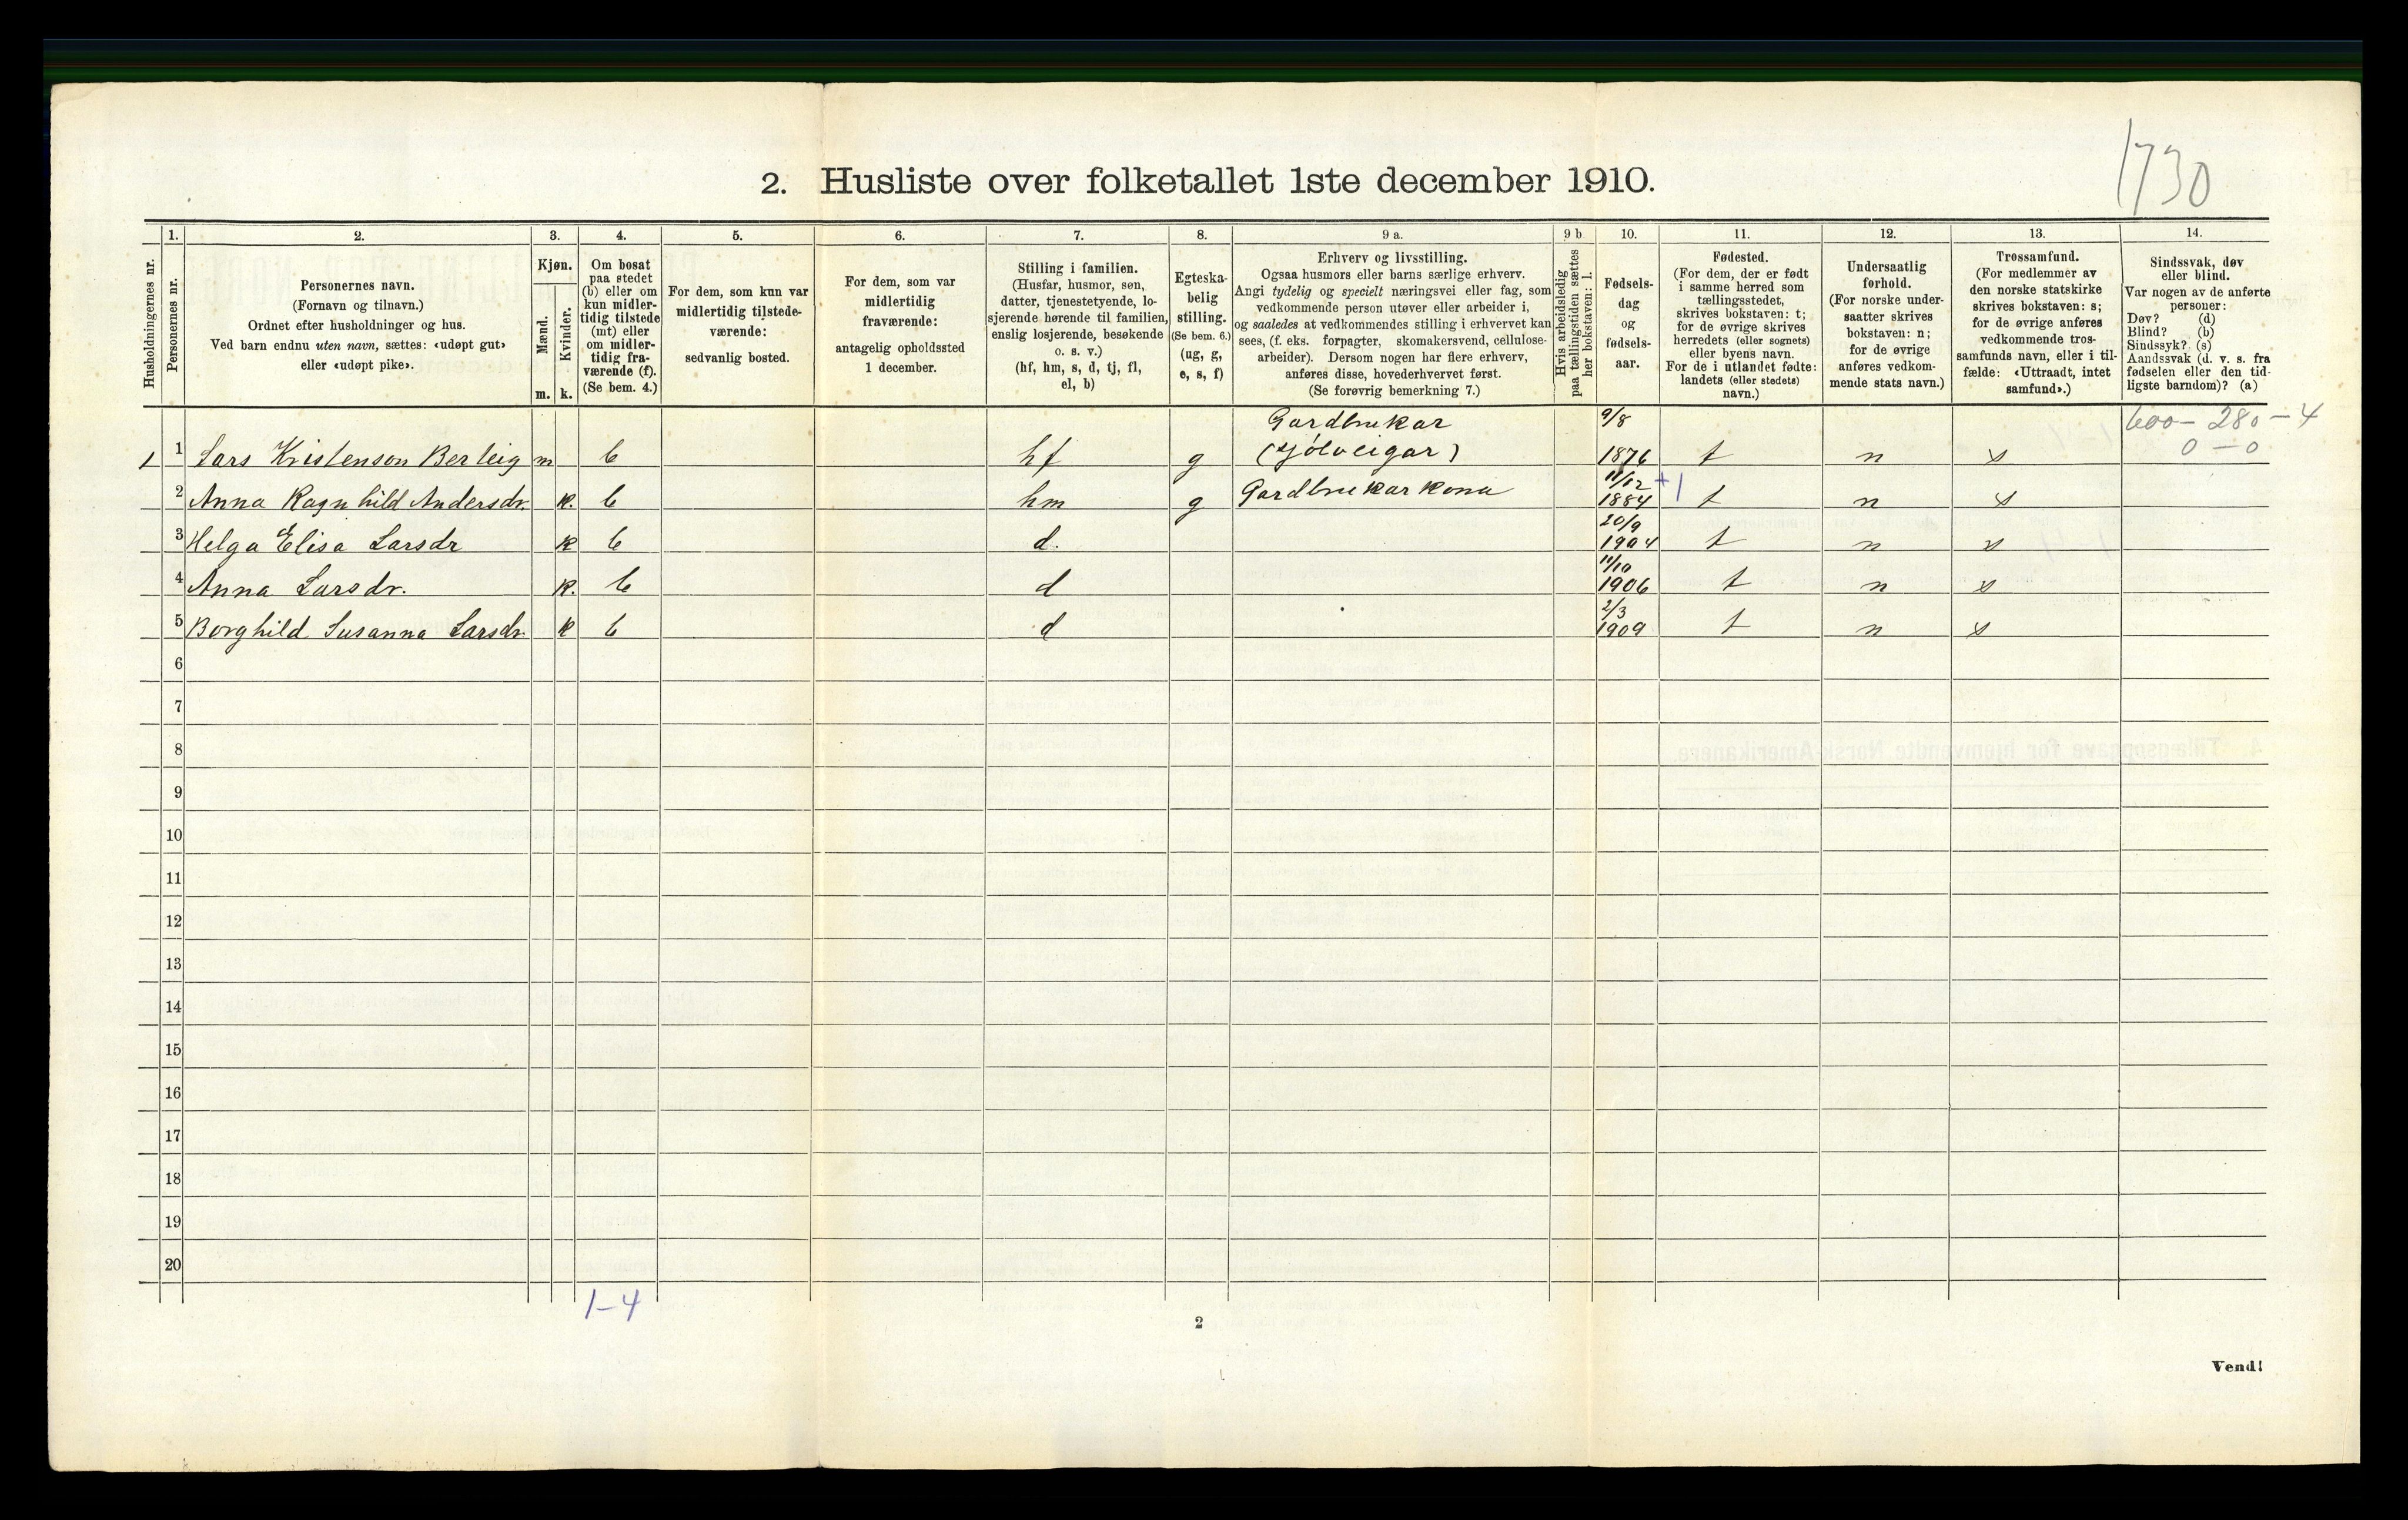 1730
2. Husliste over folketallet 1ste december 1910.
Husholdningernes nr.
1.
Personernes nr.
2.
Personernes navn.
(Fornavn og tilnavn.)
Ordnet efter husholdninger og hus.
Ved barn endnu uten navn, sættes: «udøpt gut»
eller «udøpt pike».
3.
Kjøn.
Mænd.
Kvinder.
m. k.
4.
Om bosat
paa stedet
(b) eller om
kun midler-
tidig tilstede
(mt) eller
om midler-
tidig fra-
værende (f).
(Se bem. 4.)
5.
For dem, som kun var
midlertidig tilstede-
værende:
sedvanlig bosted.
6.
For dem, som var
midlertidig
fraværende:
antagelig opholdssted
1 december.
7.
Stilling i familien.
(Husfar, husmor, søn,
datter, tjenestetyende, lo-
sjerende hørende til familien,
enslig losjerende, besøkende
o. s. v.)
(hf, hm, s, d, tj, fl,
el, b)
8.
Egteska-
belig
stilling.
(Se bem. 6.)
(ug, g,
e, s, f)
9 a.
Erhverv og livsstilling.
Ogsaa husmors eller barns særlige erhverv.
Angi tydelig og specielt næringsvei eller fag, som
vedkommende person utøver eller arbeider i,
og saaledes at vedkommendes stilling i erhvervet kan
sees, (f. eks. forpagter, skomakersvend, cellulose-
arbeider). Dersom nogen har flere erhverv,
anføres disse, hovederhvervet først.
(Se forøvrig bemerkning 7.)
9 b
Hvis arbeidsledig
paa tællingstiden sættes
her bokstaven: l.
10.
Fødsels-
dag
og
fødsels-
aar.
11.
Fødested.
(For dem, der er født
i samme herred som
tællingsstedet,
skrives bokstaven: t;
for de øvrige skrives
herredets (eller sognets)
eller byens navn.
For de i utlandet fødte:
landets (eller stedets)
navn.)
12.
Undersaatlig
forhold.
(For norske under-
saatter skrives
bokstaven: n;
for de øvrige
anføres vedkom-
mende stats navn.)
13.
Trossamfund.
(For medlemmer av
den norske statskirke
skrives bokstaven: s;
for de øvrige anføres
vedkommende tros-
samfunds navn, eller i til-
fælde: «Uttraadt, intet
samfund».)
14.
Sindssvak, døv
eller blind.
Var nogen av de anførte
personer:
Døv? (d)
Blind? (b)
Sindssyk? (s)
Aandssvak (d. v. s. fra
fødselen eller den tid-
ligste barndom)? (a)
Gardbrukar 9/8 600 – 280 – 4
1 1 Lars Kristenson Berleig m b hf g (sjølveigar) 1876 t n s 0 – 0
11/12 +1
2 Anna Ragnhild Andersdr. k. b hm g Gardbrukarkona 1884 t n s
20/9
3 Helga Elisa Larsdr k b d. 1904 t n s
11/10
4 Anna Larsdr. k. b d 1906 t n s
2/3
5 Borghild Susanna Larsdr. k b d 1909 t n s
6
7
8
9
10
11
12
13
14
15
16
17
18
19
20
1–4
2
Vend!